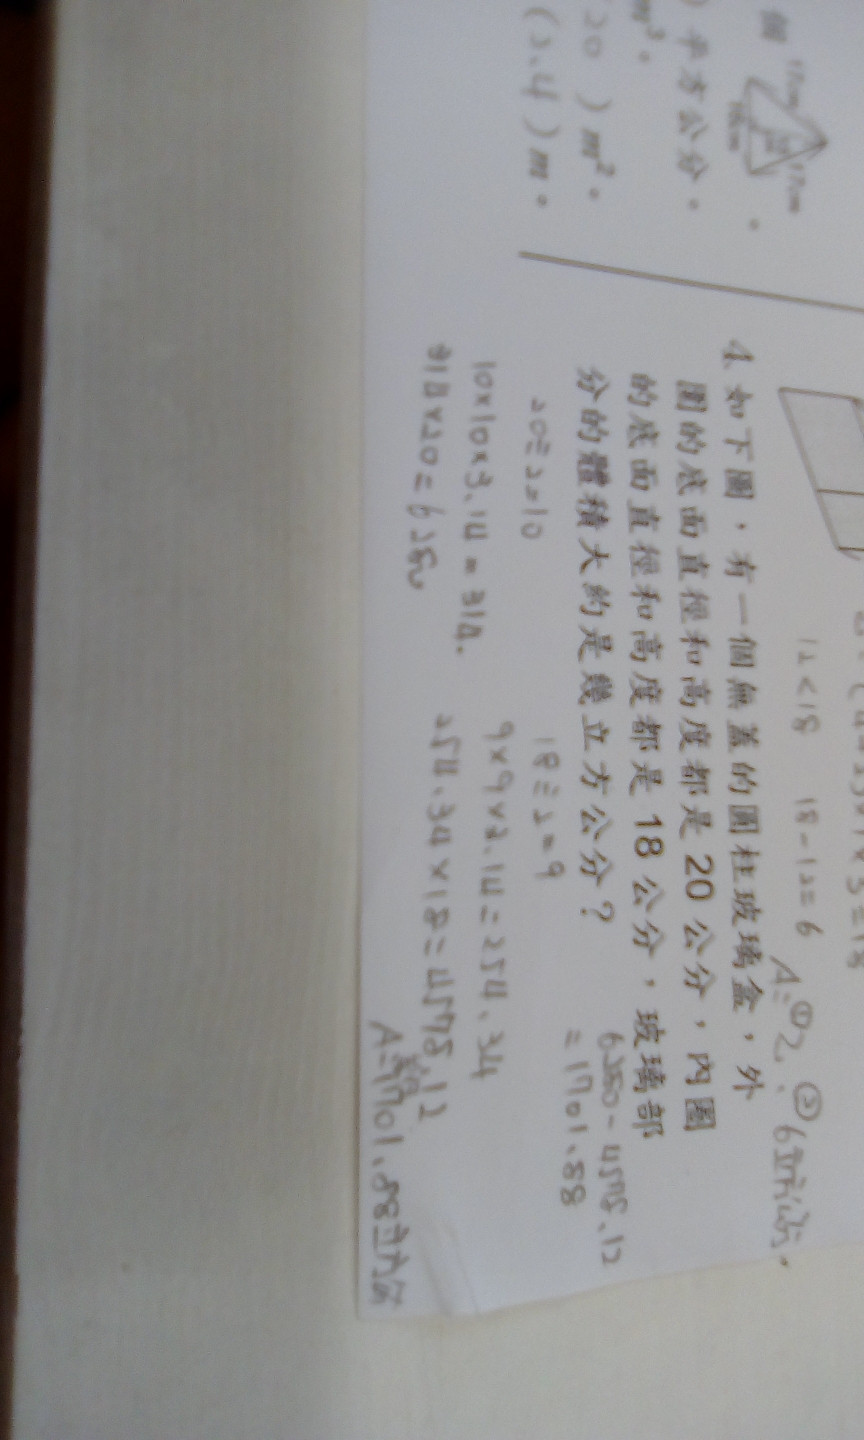 個
17cm
17cm
) 平方公分。
m³。
20 ) m²。
(2.4) m。
12<18 18-12=6
A:①2、②6立方公分。
4. 如下圖，有一個無蓋的圓柱玻璃盒，外
圍的底面直徑和高度都是 20 公分，內圍
的底面直徑和高度都是 18 公分，玻璃部
分的體積大約是幾立方公分？
20÷2=10
10×10×3.14=314.
314×20=6280
18÷2=9
9×9×3.14=254.34
254.34×18=4578.12
6280-4578.12
=1701.88
A:約1701.88立方公分